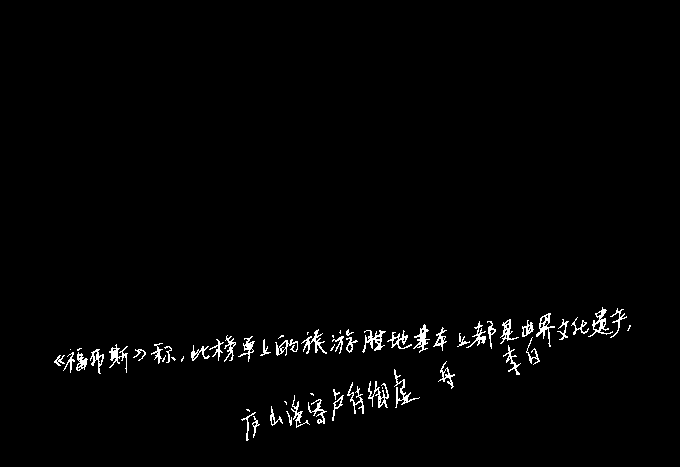 《福布斯》称,此榜单上的旅游胜地基本上都是世界文化遗产,
庐山谣寄卢侍御虚舟 李白